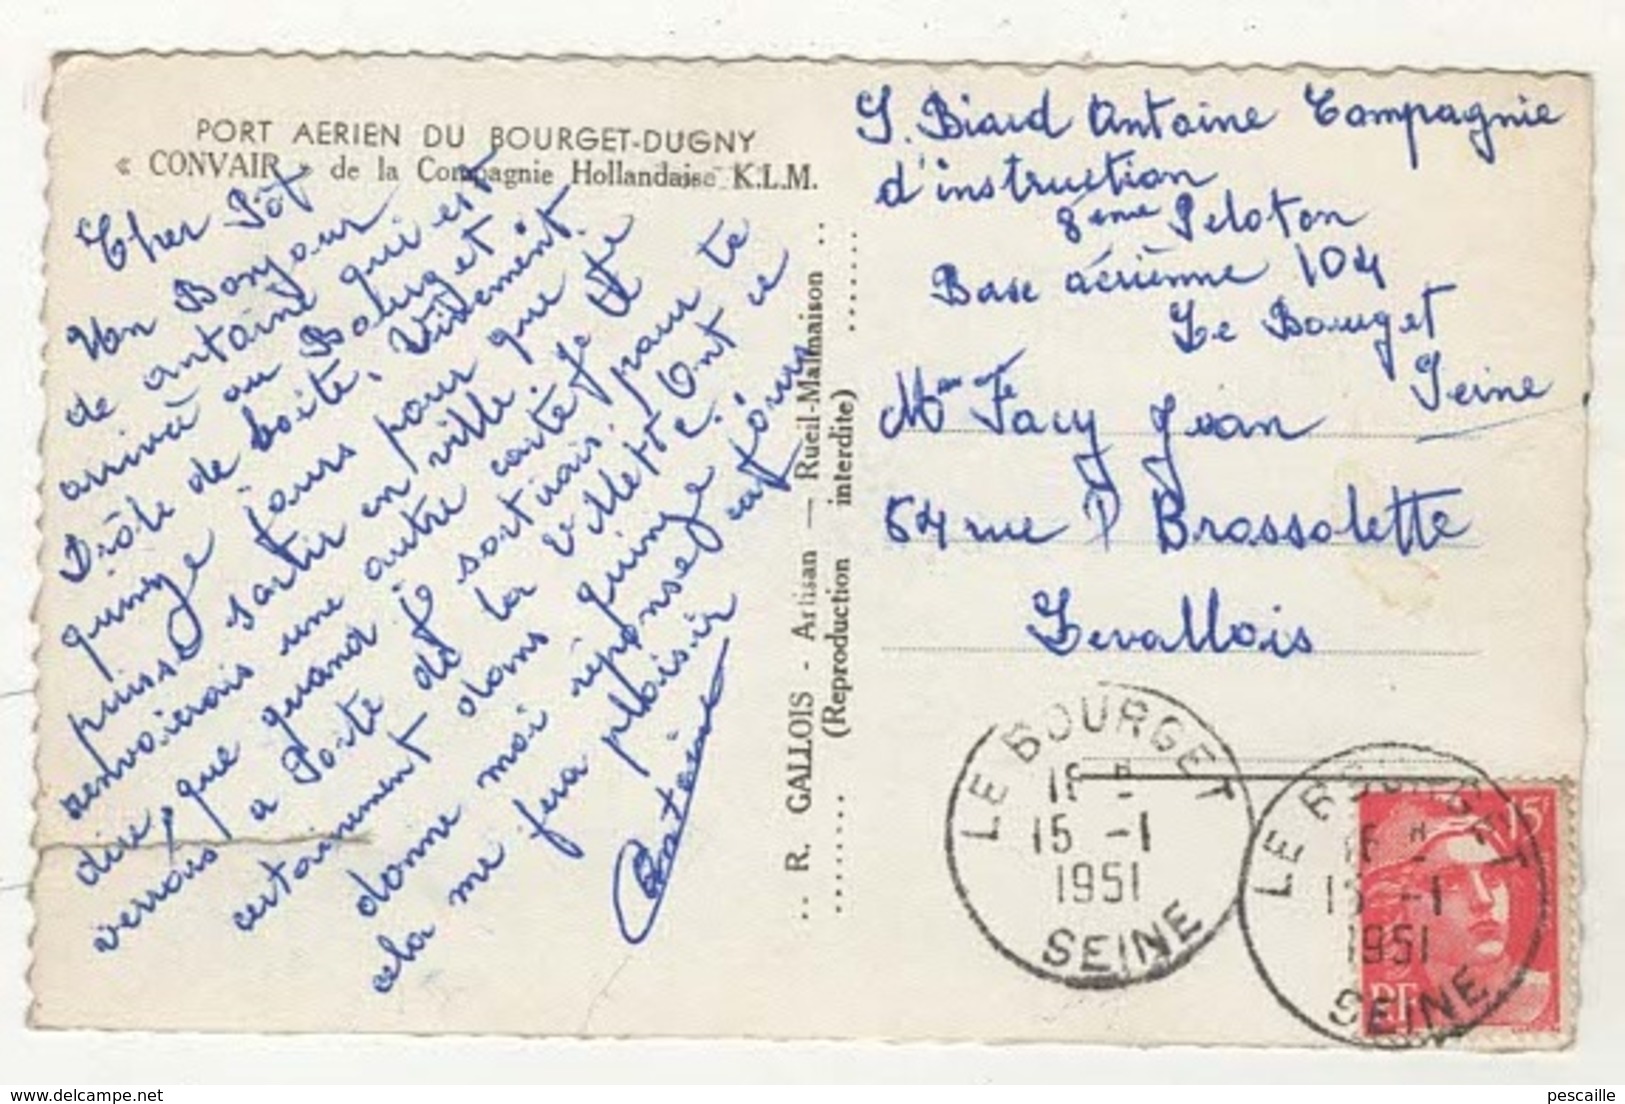 PORT AERIEN DU BOURGET-DUGNY
« CONVAIR » de la Compagnie Hollandaise K.L.M.
Cher Jôf
Un Bonjour
de antoine qui est
arrivé au Bourget
Drôle de boite. Vivement
quinze jours pour que je
puisse sortir en ville. je te
renvoierais une autre carte pour te
dire, que quand je sortirais. On ce
verrais a Porte de la Villette.
certainement dans quinze jours
donne moi réponse car
cela me fera plaisir
Antoine
.. R. GALLOIS - Artisan — Rueil-Malmaison ..
....... (Reproduction interdite) .......
S. Biard Antoine Compagnie
d'instruction
8ème Peloton
Base aérienne 104
Le Bourget
Seine
Mr Facy Jean
54 rue P Brossolette
Levallois
LE BOURGET
15 -1
1951
SEINE
LE BOURGET
15 -1
1951
SEINE
15F
RF
pescaille